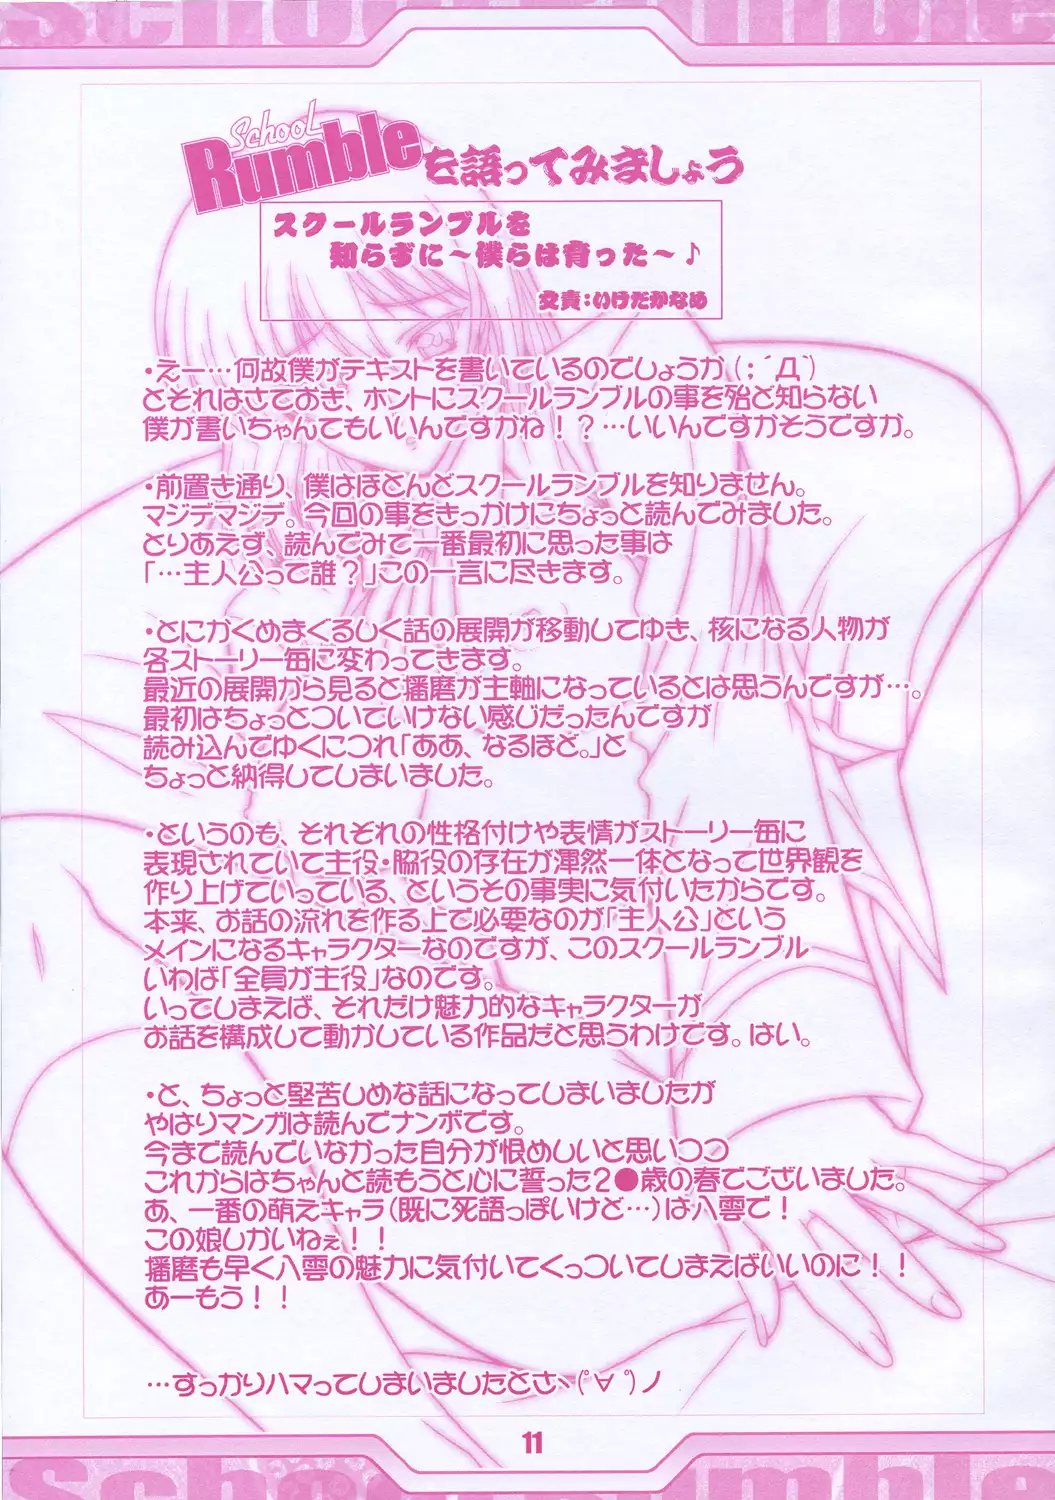 School Rumbleを語ってみましょう
スクールランブルを
知らずに～僕らは育った～♪
文責：いけだかなめ
・えー…何故僕がテキストを書いているのでしょうか(；´Д`)
とそれはさておき、ホントにスクールランブルの事を殆ど知らない
僕が書いちゃんてもいいんですかね！？…いいんですかそうですか。
・前置き通り、僕はほとんどスクールランブルを知りません。
マジデマジデ。今回の事をきっかけにちょっと読んでみました。
とりあえず、読んでみて一番最初に思った事は
「…主人公って誰？」この一言に尽きます。
・とにかくめまぐるしく話の展開が移動してゆき、核になる人物が
各ストーリー毎に変わってきます。
最近の展開から見ると播磨が主軸になっているとは思うんですが…。
最初はちょっとついていけない感じだったんですが
読み込んでゆくにつれ「ああ、なるほど。」と
ちょっと納得してしまいました。
・というのも、それぞれの性格付けや表情がストーリー毎に
表現されていて主役・脇役の存在が渾然一体となって世界観を
作り上げていっている、というその事実に気付いたからです。
本来、お話の流れを作る上で必要なのが「主人公」という
メインになるキャラクターなのですが、このスクールランブル
いわば「全員が主役」なのです。
いってしまえば、それだけ魅力的なキャラクターが
お話を構成して動かしている作品だと思うわけです。はい。
・と、ちょっと堅苦しめな話になってしまいましたが
やはりマンガは読んでナンボです。
今まで読んでいなかった自分が恨めしいと思いつつ
これからはちゃんと読もうと心に誓った2●歳の春でございました。
あ、一番の萌えキャラ(既に死語っぽいけど…)は八雲で！
この娘しかいねぇ！！
播磨も早く八雲の魅力に気付いてくっついてしまえばいいのに！！
あーもう！！
…すっかりハマってしまいましたとさヽ(ﾟ∀ﾟ)ノ
11